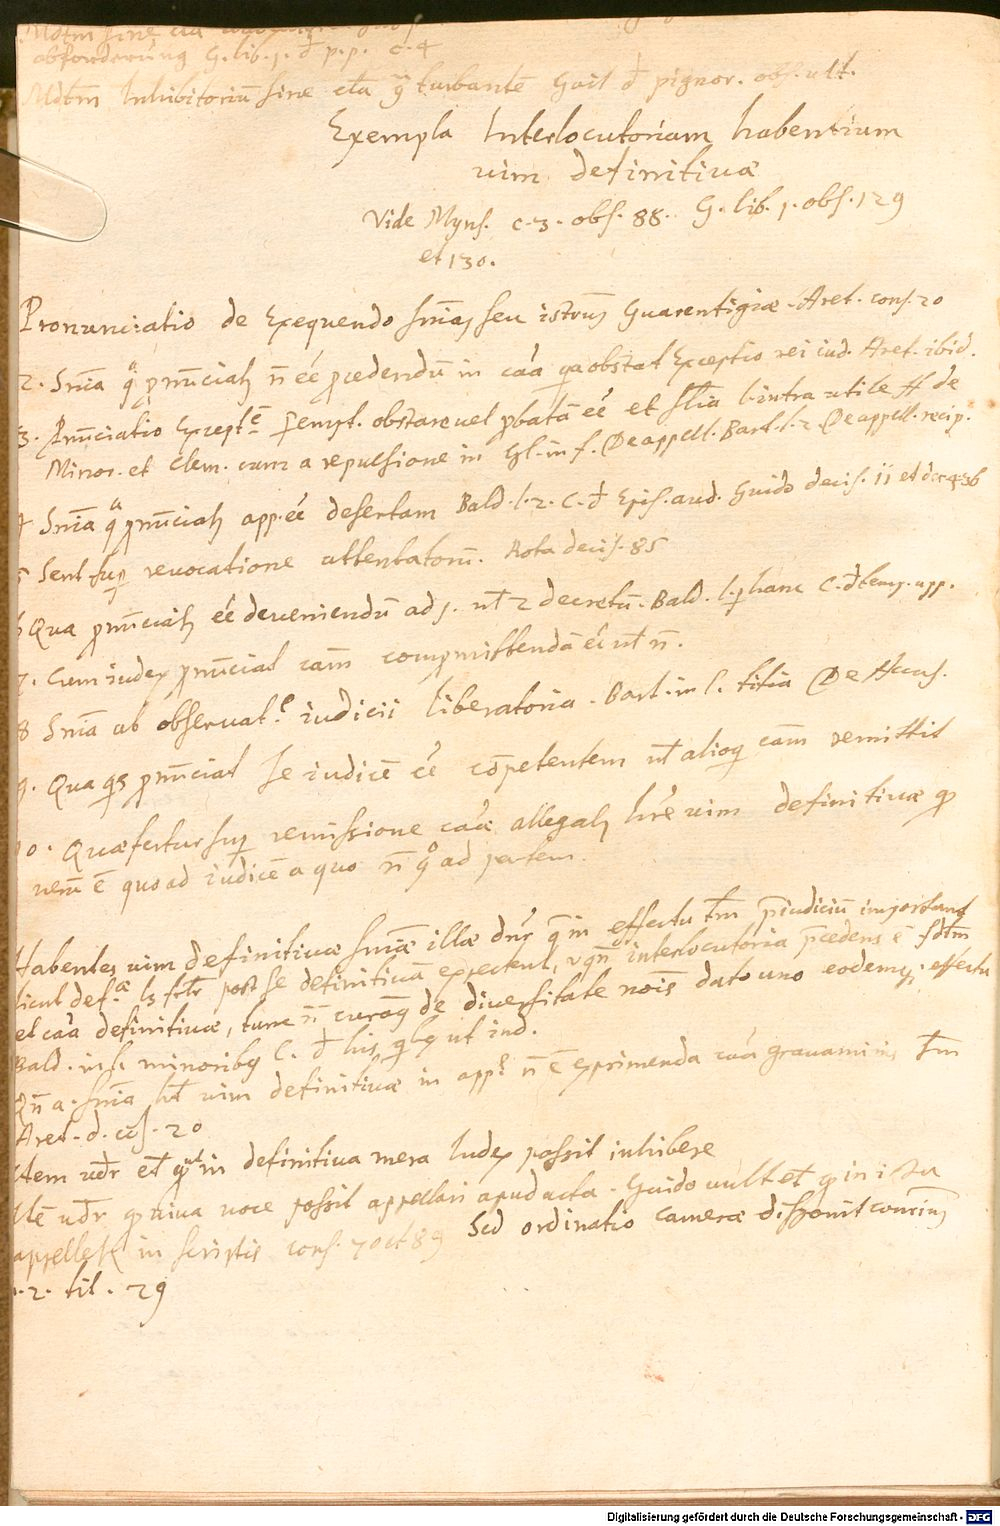 Mdtm sine
abforderung G. lib. 1. đ p.p. c. 4
Mdtm Inhibitoriū sine cla turbantē Gail đ pignor. obs. ult.
Exempla Interlocutoriam habentium
uim definitiuæ
Vide Myns. c. 3. obs. 88. G. lib. 1. obs. 129
et 130.
Pronunciatio de Exequendo snīas seu istrūs Guarentigiæ. Aret. cons. 20
2. Snīa q̊ pnūciat n̄ eē pcedendū in cāa qa obstat Exceptio rei iud. Aret. ibid.
3. Pnūciatio Except. obstare uel pbatā eē et l. intra utile ff de
Minor. et Clem. cum a repulsione in Gl. in f. De appell. Bart. l. 2. De appell. recip.
4 Snīa q̊ pnūciat app. eē desertam Bald. l. 2. C. đ Epis. aud. Guido decis. ii et
5 Sent. sup reuocatione attentatorū. Rota decis. 85
6 Qua pnūciat eē deueniendū ad 1. ut 2 decretū. Bald. l. p hanc C. đ temp. app.
7. Cum iudex pnūciat cām compmittendā eē ut n̄.
8 Snīa ab obseruat. iudicii liberatoria. Bart. in l. titia De Accus.
9. Qua qs pnūciat se iudicē eē cōpetentem ut alioq cām remittit
10. Quæ fertur sup remissione cāæ allegat hrē uim definitiuæ qp
uerū ē quo ad iudicē a quo n̄ qo ad partem.
Habentes uim definitiuæ snīæ illæ dnr q in effectu tm̄ p̄iudiciū important
sicut def. post se definitiuā expectent, interlocutoria p̄cedens ē
et cāa definitiuæ, tunc n̄ curag de diuersitate noīs dato uno eodemq effectu
Bald. in l. minoribq C. đ his qbq ut ind.
Qn̄ a. snīa ht uim definitiuæ in app. n̄ ē exprimenda cāa grauaminis tm̄
Aret. d. cōs. 20
Item uđr in definitiua mera Iudex possit inhibere
Itē uđr qp uiua uoce possit appellari apud acta. Guido uult et qp in istu
appellet in scriptis cons. 70 et 89 Sed ordinatio cameræ disponit
p. 2. tit. 29
Digitalisierung gefördert durch die Deutsche Forschungsgemeinschaft - DFG